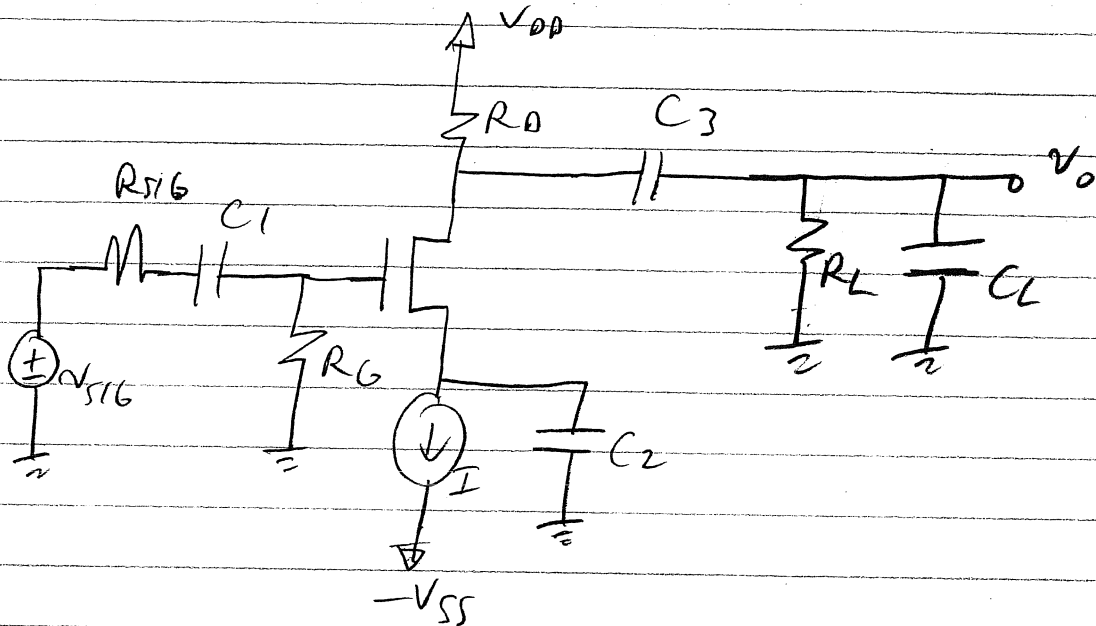 VDD
RD
C3
vo
RSIG
C1
RL
CL
RG
vSIG
I
C2
-VSS